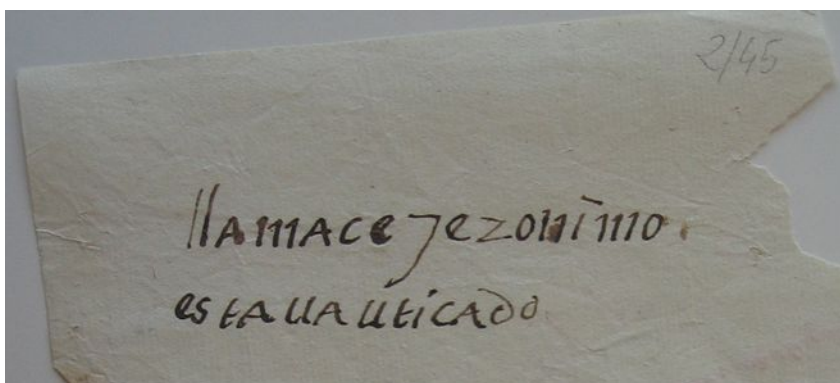 2/45
llamace jeronimo.
esta uauticado